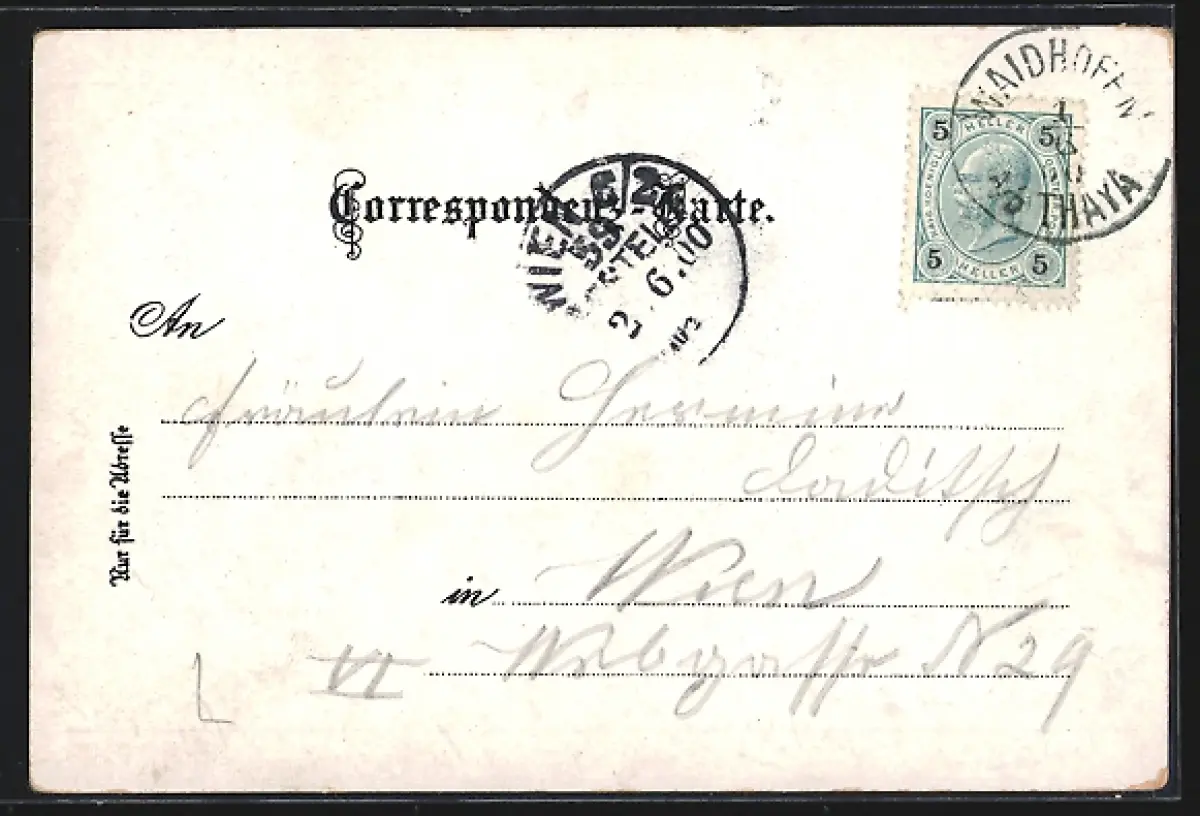 Correspondenz-Karte.
WAIDHOFEN
THAYA
5 HELLER 5
5 HELLER 5
WIEN
59
BESTELLT
2.6.00
An
Fräulein Hermine
in Wien
VI Webgasse N 29
Nur für die Adresse